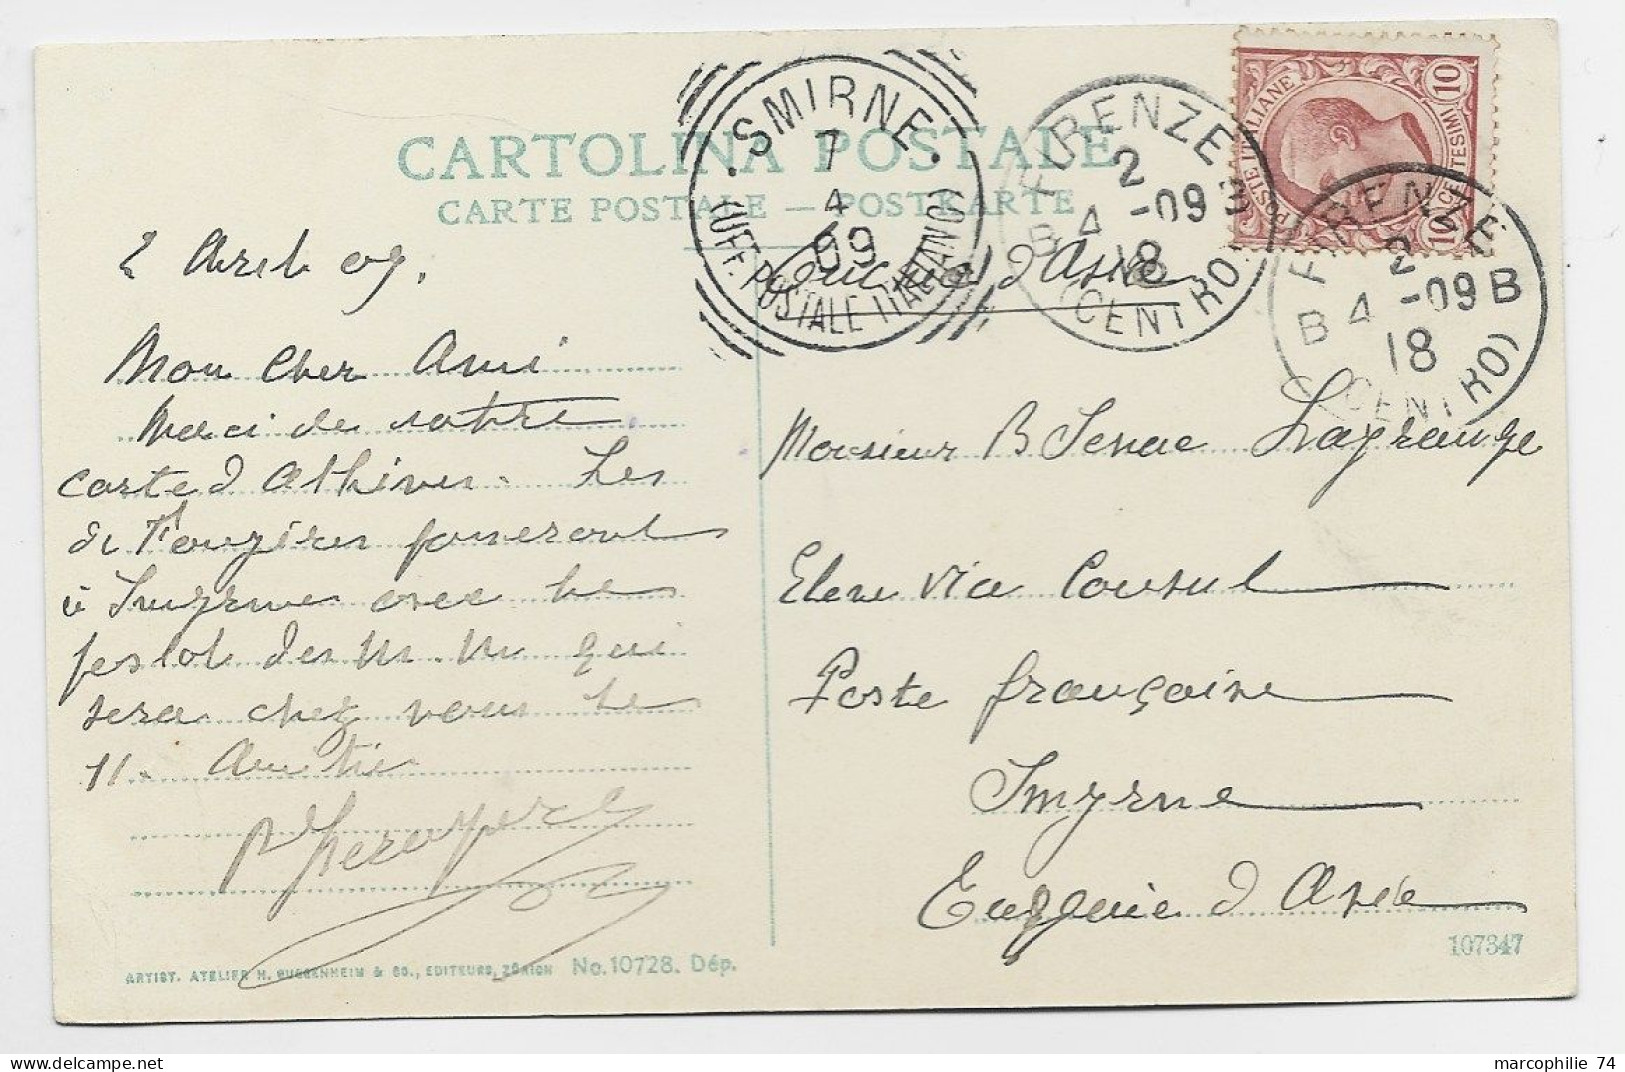 CARTOLINA POSTALE
CARTE POSTALE — POSTKARTE
SMIRNE
7
4
09
(UFF. POSTALE ITALIANO)
FIRENZE
2
B 4 -09 B
18
(CENTRO)
POSTE ITALIANE
CENTESIMI
10
10
FIRENZE
2
B 4 -09 B
18
(CENTRO)
2 Avril 09.
Turquie d'Asie
Mon Cher Ami
Merci de votre
carte d Athènes. Les
de Fougères passeront
à Smyrne avec le
des M. M qui
sera chez vous le
11. Amitiés
Monsieur B Senac Lagrange
Eleve Vice Consul
Poste française
Smyrne
Turquie d Asie
107347
ARTIST. ATELIER H. GUGGENHEIM & CO., EDITEURS, ZÜRICH No. 10728. Dép.
marcophilie 74